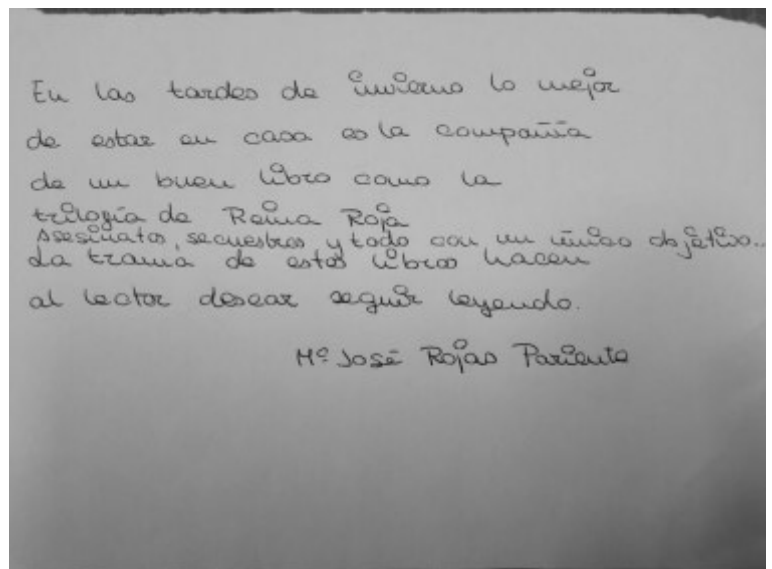 En las tardes de invierno lo mejor
de estar en casa es la compañía
de un buen libro como la
trilogía de Reina Roja
Asesinatos, secuestros y todo con un único objetivo..
La trama de estos libros hacen
al lector desear seguir leyendo.
Mª José Rojas Pariente